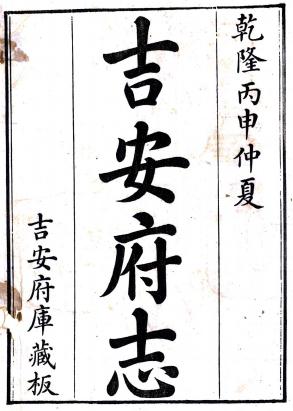 乾隆丙申仲夏
吉安府志
吉安府庫藏板